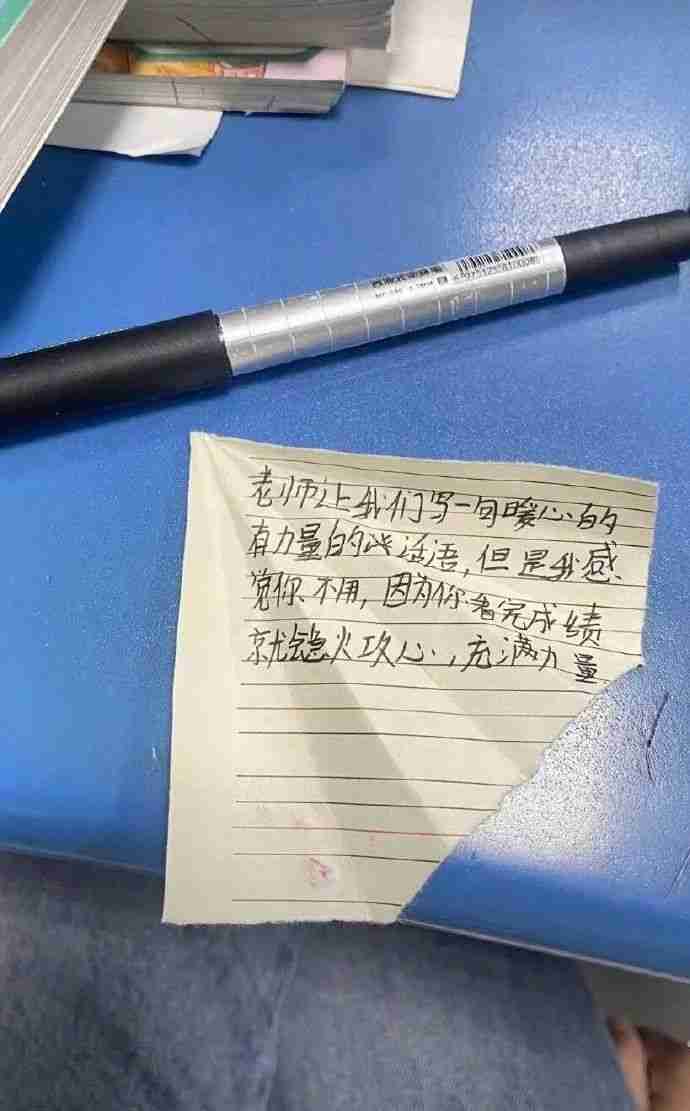 老师让我们写一句暖心的
有力量的些话语,但是我感
觉你不用,因为你看完成绩
就急火攻心,充满力量